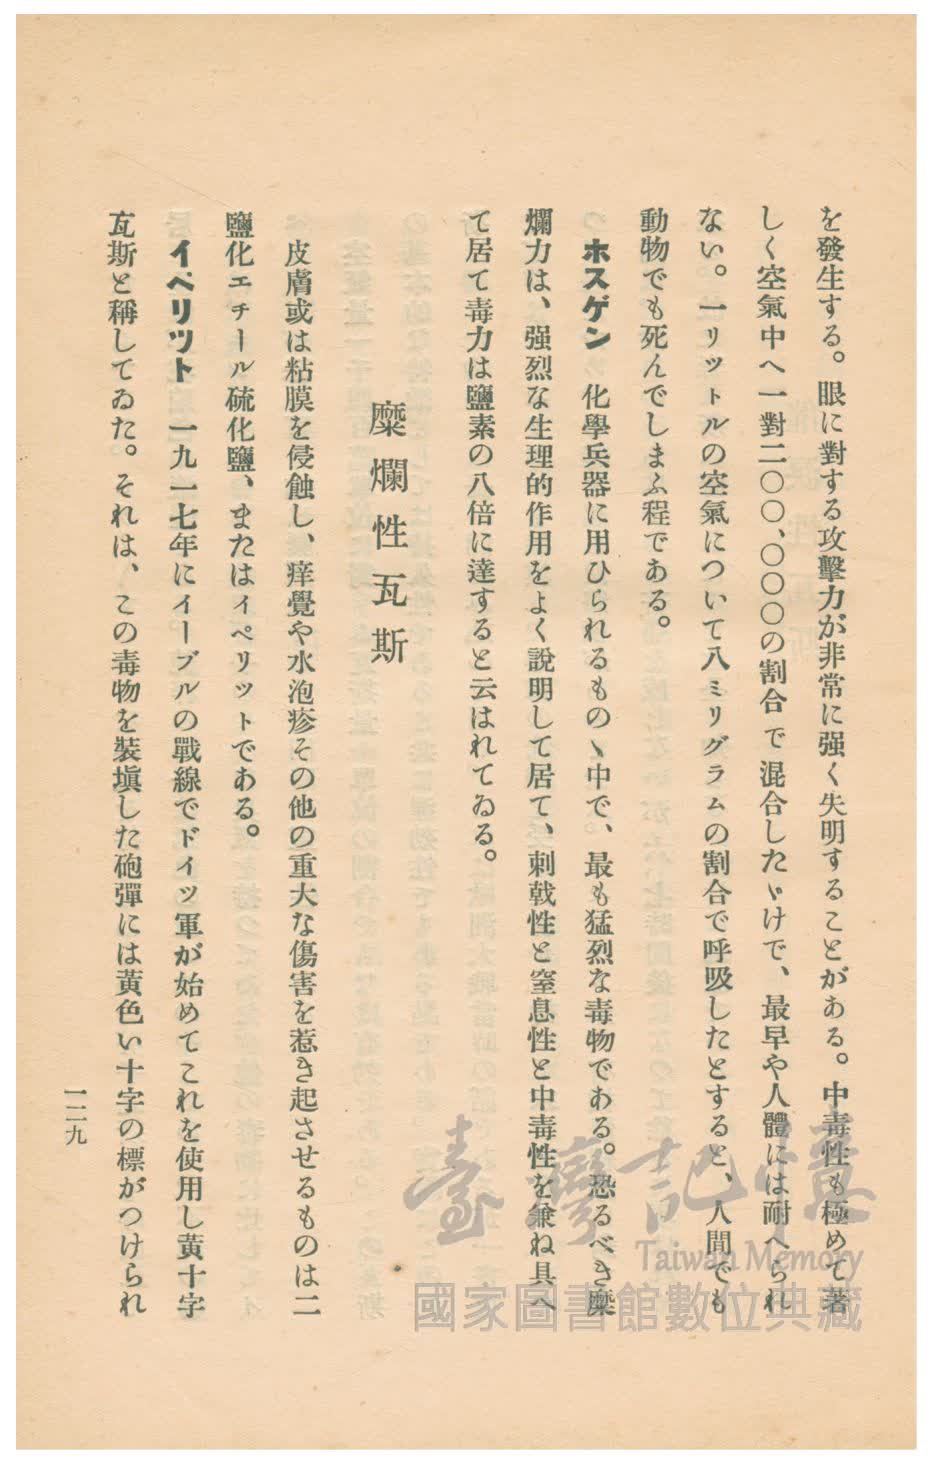 を發生する。眼に對する攻擊力が非常に强く失明することがある。中毒性も極めて著
しく空氣中へ一對二〇〇、〇〇〇の割合で混合したゞけで、最早や人體には耐へられ
ない。一リットルの空氣について八ミリグラムの割合で呼吸したとすると、人間でも
動物でも死んでしまふ程である。
ホスゲン　化學兵器に用ひられるものゝ中で、最も猛烈な毒物である。恐るべき糜
爛力は、强烈な生理的作用をよく說明して居て、刺戟性と窒息性と中毒性を兼ね具へ
て居て毒力は鹽素の八倍に達すると云はれてゐる。
糜爛性瓦斯
皮膚或は粘膜を侵蝕し、痒覺や水泡疹その他の重大な傷害を惹き起させるものは二
鹽化エチール硫化鹽、またはイペリットである。
イペリツト　一九一七年にイーブルの戰線でドイツ軍が始めてこれを使用し黃十字
瓦斯と稱してゐた。それは、この毒物を裝塡した砲彈には黃色い十字の標がつけられ
一二九
臺灣記憶
Taiwan Memory
國家圖書館數位典藏